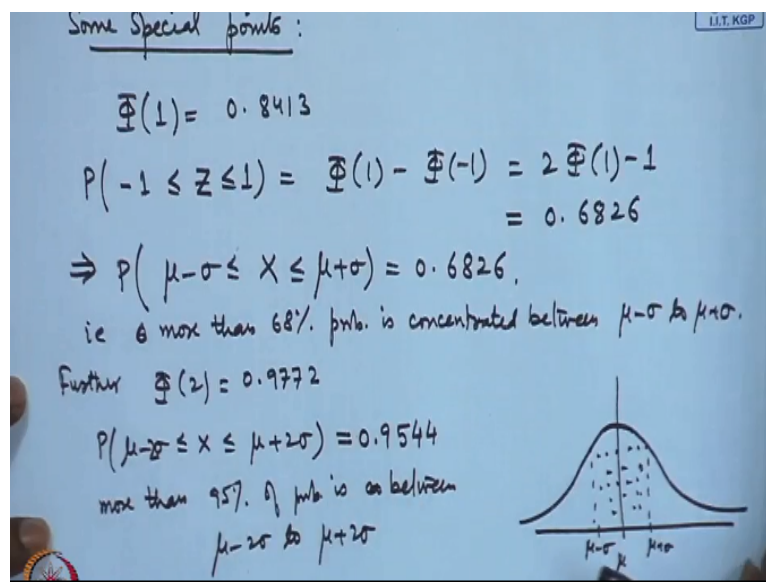 Some Special points :
I.I.T. KGP
Φ(1) = 0.8413
P( -1 ≤ Z ≤ 1) = Φ(1) - Φ(-1) = 2 Φ(1) - 1
= 0.6826
⇒ P( μ-σ ≤ X ≤ μ+σ) = 0.6826.
ie more than 68% prob. is concentrated between μ-σ to μ+σ.
Further Φ(2) = 0.9772
P(μ-2σ ≤ X ≤ μ+2σ) = 0.9544
more than 95% of prob is between
μ-2σ to μ+2σ
μ-σ μ μ+σ